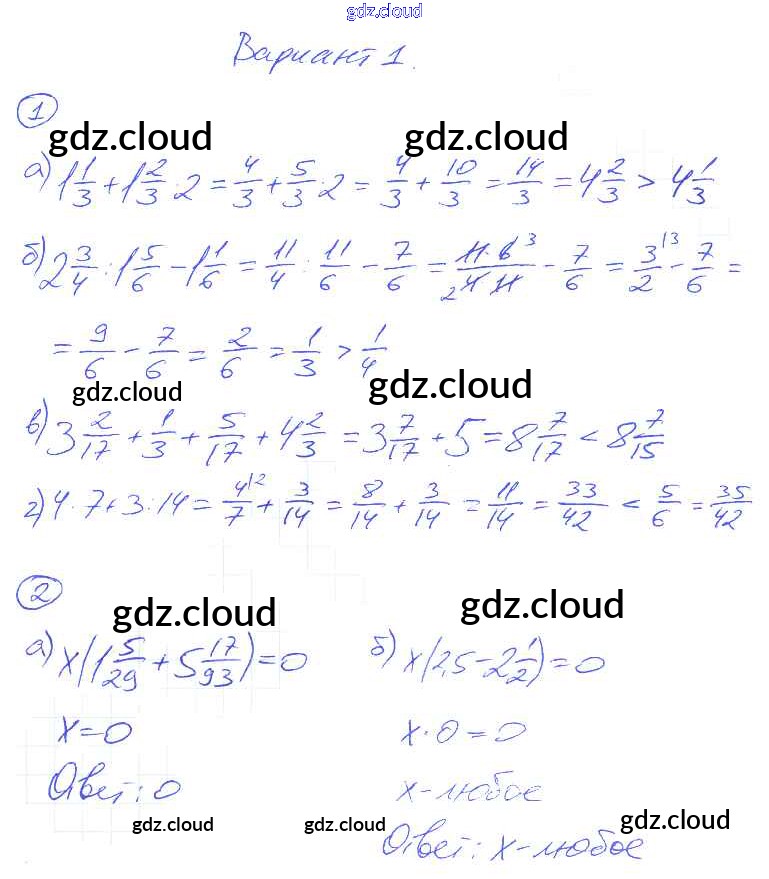 gdz.cloud
Вариант 1.
1
gdz.cloud gdz.cloud
а) 1 1/3 + 1 2/3 · 2 = 4/3 + 5/3 · 2 = 4/3 + 10/3 = 14/3 = 4 2/3 > 4 1/3
б) 2 3/4 : 1 5/6 - 1 1/6 = 11/4 : 11/6 - 7/6 = 11·6 3/2 4·11 - 7/6 = 3/2 |3 - 7/6 =
= 9/6 - 7/6 = 2/6 = 1/3 > 1/4
gdz.cloud gdz.cloud
в) 3 2/17 + 1/3 + 5/17 + 4 2/3 = 3 7/17 + 5 = 8 7/17 < 8 7/15
г) 4 · 7 + 3 : 14 = 4/7 |2 + 3/14 = 8/14 + 3/14 = 11/14 = 33/42 < 5/6 = 35/42
2
gdz.cloud gdz.cloud
а) x(1 5/29 + 5 17/93) = 0 б) x(2,5 - 2 1/2) = 0
x = 0 x · 0 = 0
Ответ: 0 x - любое
gdz.cloud gdz.cloud gdz.cloud
Ответ: x - любое